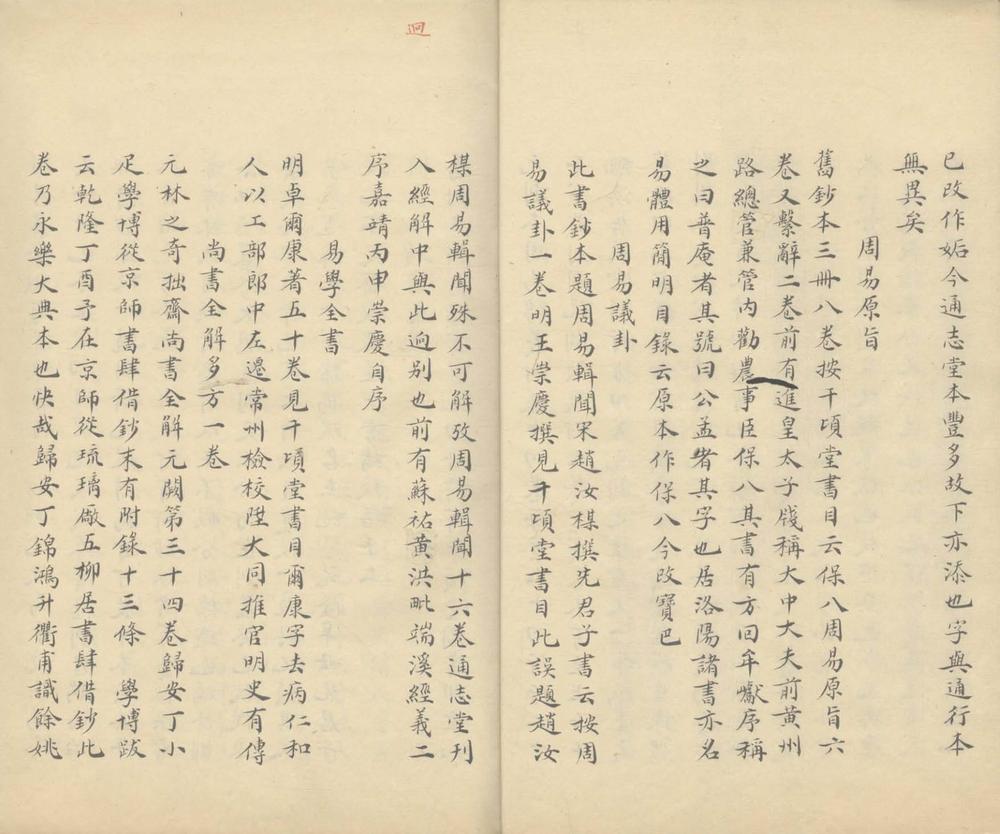 已改作姤今通志堂本豐多故下亦添也字與通行本
無異矣
周易原旨
舊鈔本三冊八卷按千頃堂書目云保八周易原旨六
卷又繫辭二卷前有進皇太子牋稱大中大夫前黃州
路總管兼管內勸農事臣保八其書有方回牟巘序稱
之曰普庵者其號曰公孟者其字也居洛陽諸書亦名
易體用簡明目錄云原本作保八今改寶巴
周易議卦
此書鈔本題周易輯聞宋趙汝楳撰先君子書云按周
易議卦一卷明王崇慶撰見千頃堂書目此誤題趙汝
楳周易輯聞殊不可解攷周易輯聞十六卷通志堂刊
入經解中與此逈別也前有蘇祐黃洪毗端溪經義二
序嘉靖丙申崇慶自序
易學全書
明卓爾康著五十卷見千頃堂書目爾康字去病仁和
人以工部郎中左遷常州檢校陞大同推官明史有傳
尚書全解多方一卷
元林之奇拙齋尚書全解元闕第三十四卷歸安丁小
疋學博從京師書肆借鈔末有附錄十三條　學博跋
云乾隆丁酉予在京師從琉璃廠五柳居書肆借鈔此
卷乃永樂大典本也快哉歸安丁錦鴻升衢甫識餘姚
迥